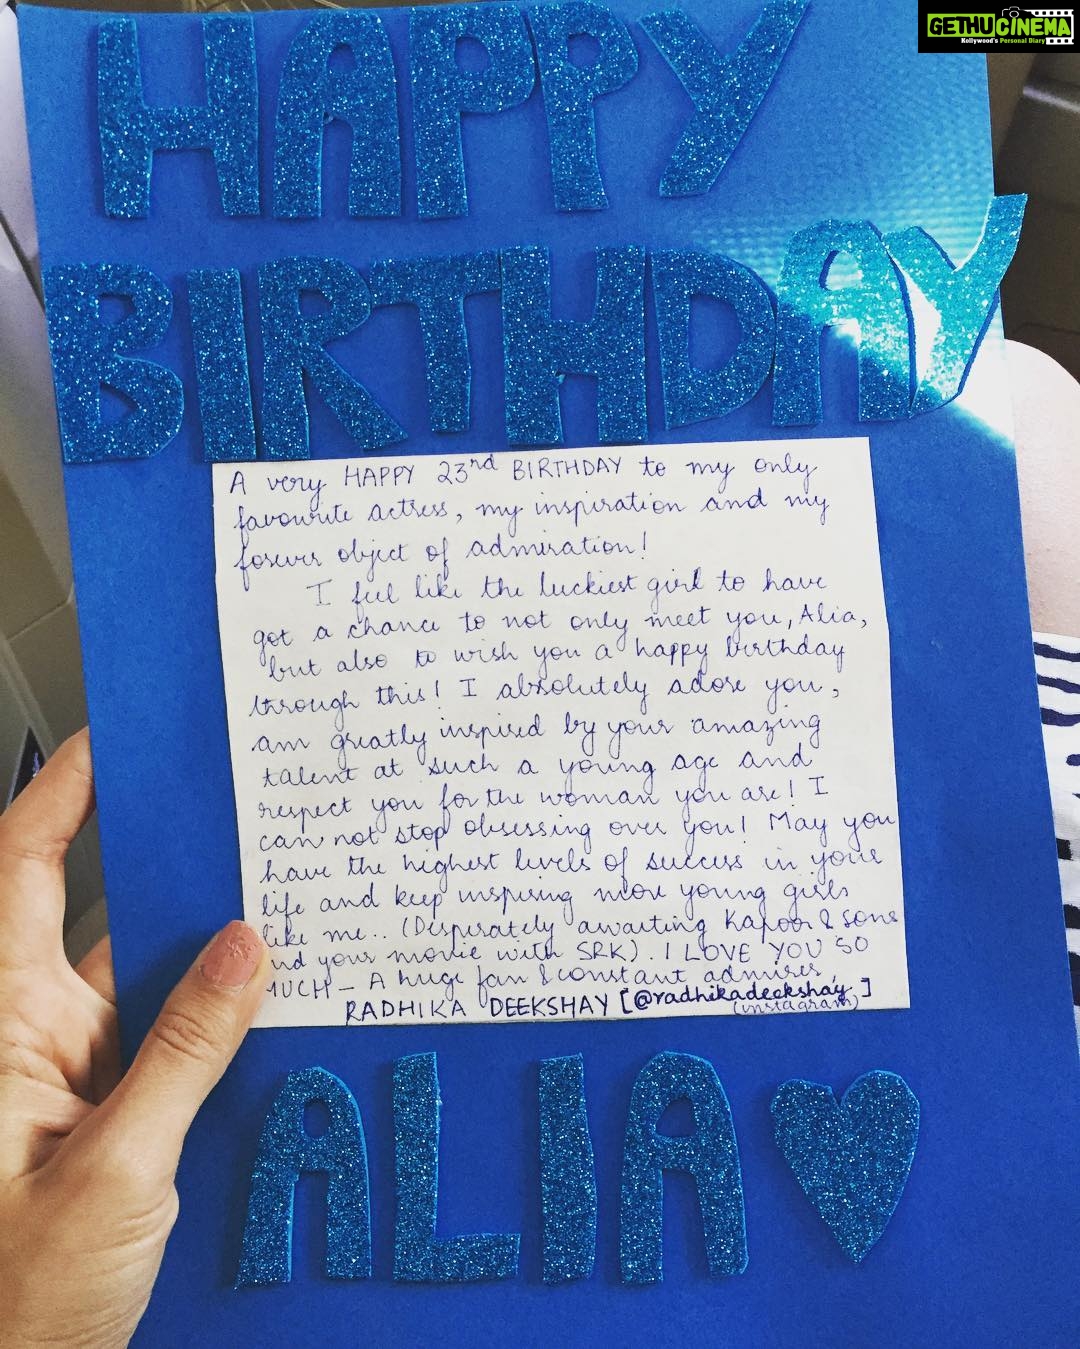 GETHUCINEMA
Kollywood's Personal Diary
HAPPY
BIRTHDAY
A very HAPPY 23rd BIRTHDAY to my only
favourite actress, my inspiration and my
forever object of admiration!
I feel like the luckiest girl to have
got a chance to not only meet you, Alia,
but also to wish you a happy birthday
through this! I absolutely adore you,
am greatly inspired by your amazing
talent at such a young age and
respect you for the woman you are! I
can not stop obsessing over you! May you
have the highest levels of success in your
life and keep inspiring more young girls
like me.. (Desperately awaiting Kapoor & Sons
nd your movie with SRK). I LOVE YOU SO
MUCH - A huge fan & constant admirer,
RADHIKA DEEKSHAY [@radhikadeekshay]
(instagram)
ALIA